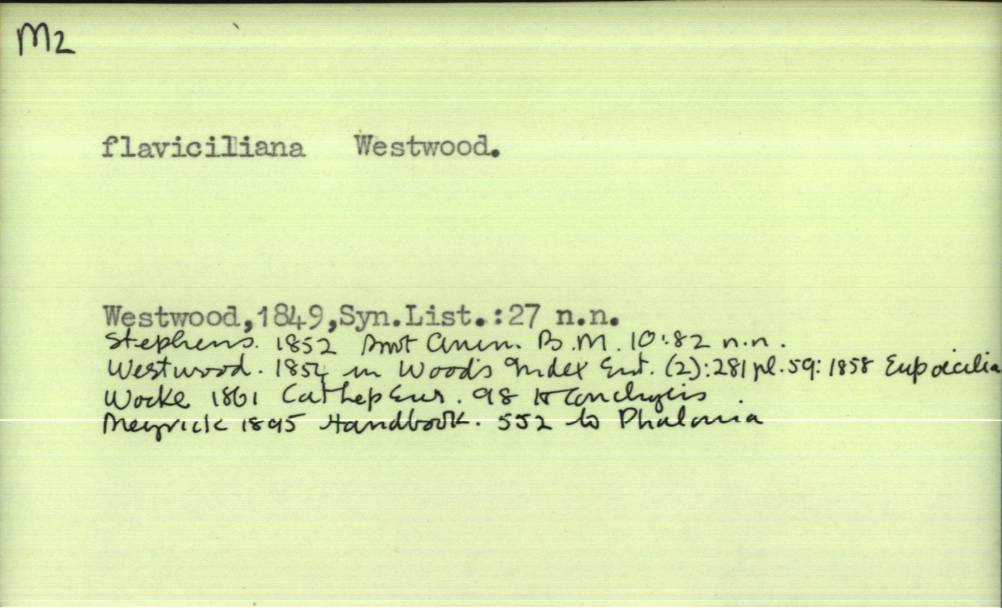 M2
flaviciliana Westwood.
Westwood,1849,Syn.List.:27 n.n.
Stephens. 1852 Brit Anim. B.M. 10:82 n.n.
Westwood. 1854 in Wood's Index Ent. (2):281 pl.59:1858 Eupoecilia
Wocke 1861 Cat Lep Eur. 98 to Conchylis.
Meyrick 1895 Handbook. 552 to Phalonia